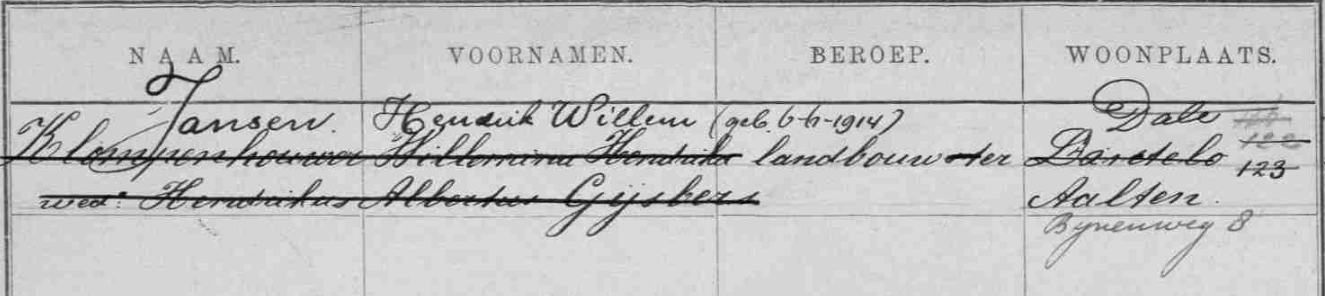 NAAM. VOORNAMEN. BEROEP. WOONPLAATS.
Jansen. Hendrik Willem (geb. 6-6-1914) Dale
Klompenhouwer Willemina Hendrika landbouwster Barlo 122
123
wed: Hendrikus Albertus Gijsbers Aalten.
Bijnenweg 8